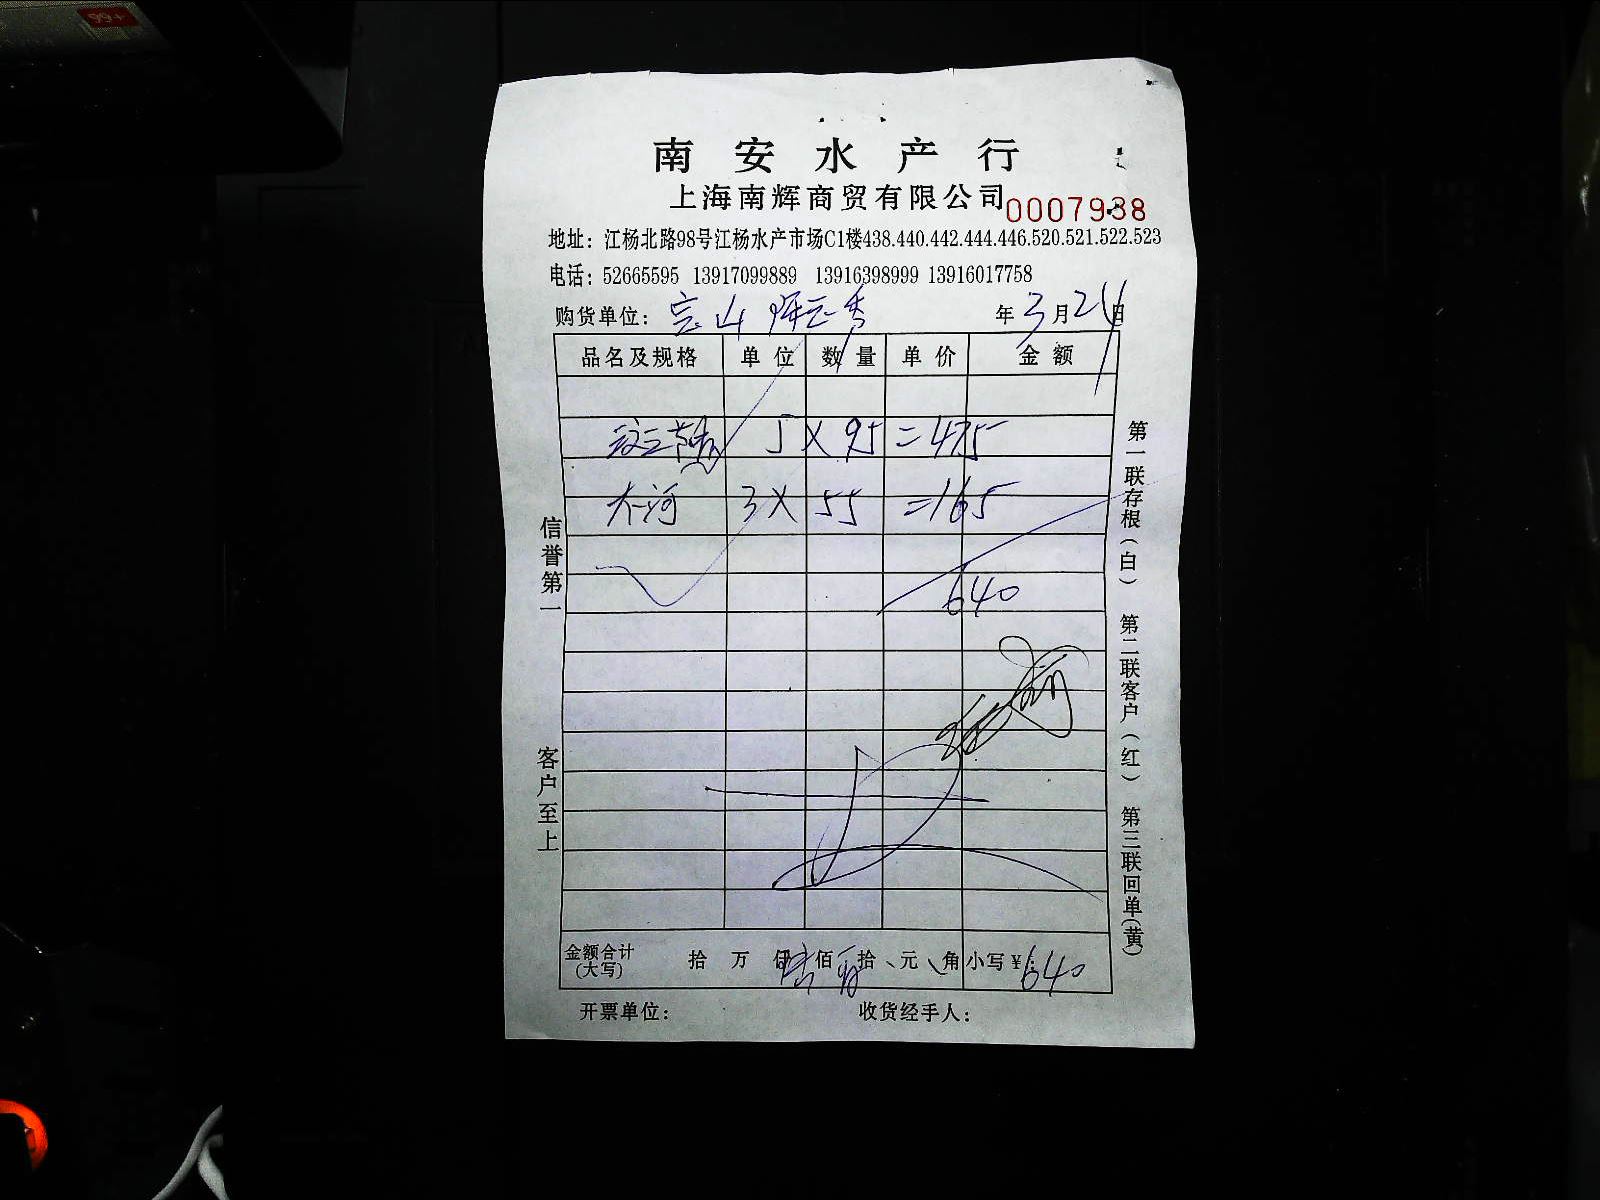 99+
南安水产行
上海南辉商贸有限公司 0007938
地址：江杨北路98号江杨水产市场C1楼438.440.442.444.446.520.521.522.523
电话：52665595 13917099889 13916398999 13916017758
购货单位：宝山 年3月21日
品名及规格 单位 数量 单价 金额
5×95=475
大河 3×55=165
640
信誉第一
客户至上
第一联存根(白) 第二联客户(红) 第三联回单(黄)
金额合计(大写) 拾 万 仟 佰 拾 元 角 小写¥:640
开票单位： 收货经手人：